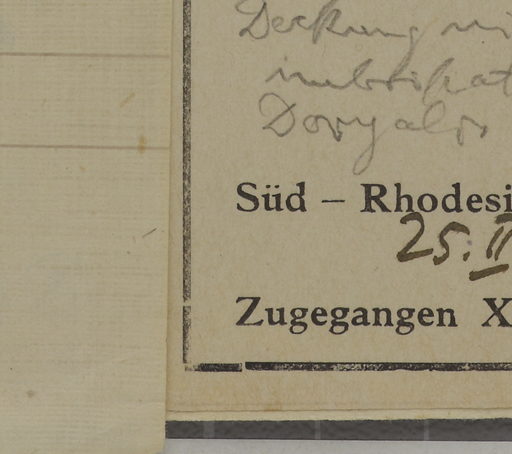 Deckung ni
imbrikat
Doryalis
Süd – Rhodesi
25. II
Zugegangen X